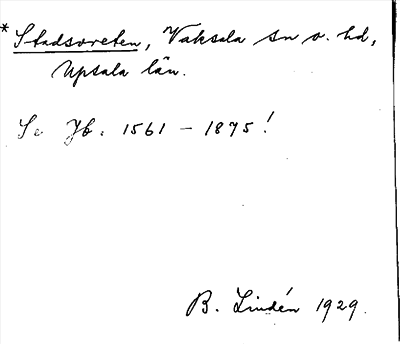 *Stadsvreten, Vaksala sn o. hd,
Upsala län.
Se Jb. 1561 – 1875!
B. Lindén 1929.